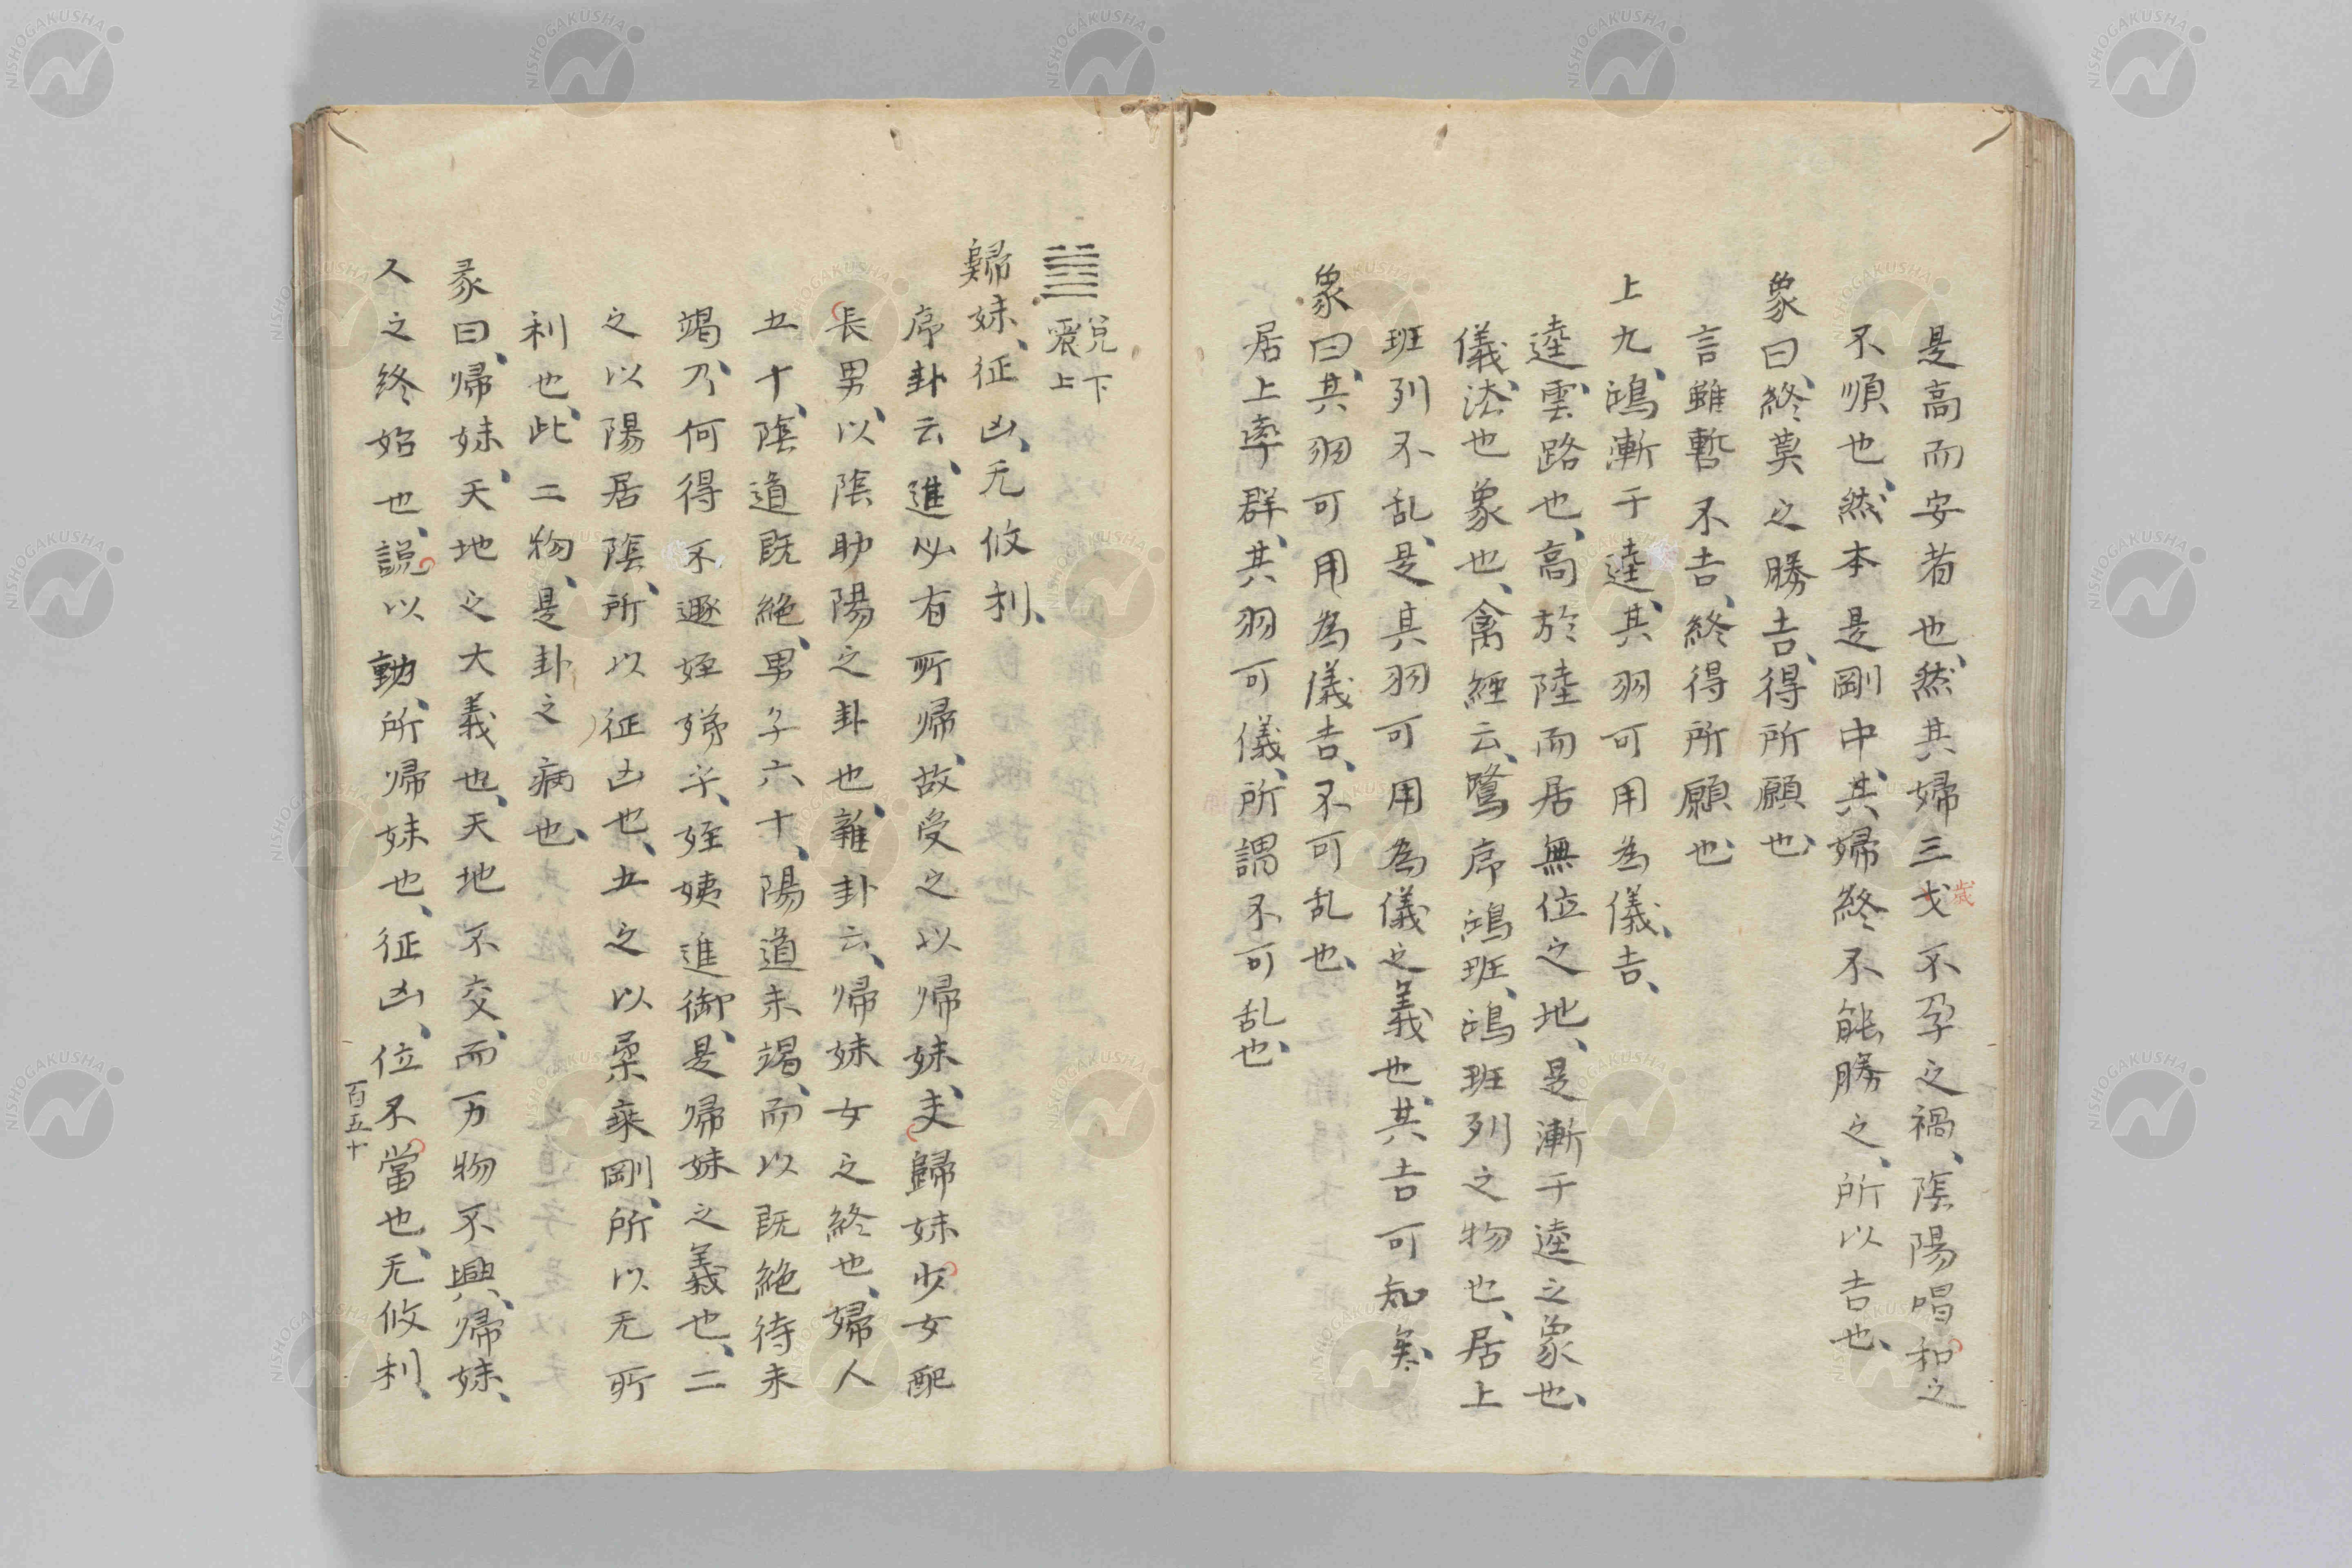 是高而安者也、然其婦三戈不孕之禍、陰陽唱和之
歳
不順也、然本是剛中、其婦終不能勝之、所以吉也、
象曰、終莫之勝吉、得所願也、
言雖暫不吉、終得所願也、
上九、鴻漸于逵、其羽可用為儀、吉、
逵、雲路也、高於陸而居無位之地、是漸于逵之象也、
儀、法也、象也、禽經云、鷺序鴻班、鴻班列之物也、居上
班列不乱、是其羽可用為儀之義也、其吉可知矣、
象曰、其羽可用為儀吉、不可乱也、
居上率群、其羽可儀、所謂不可乱也、
兌下
震上
歸妹、征凶、无攸利、
序卦云、進必有所帰、故受之以帰妹、夫歸妹少女配
長男、以陰助陽之卦也、雜卦云、帰妹女之終也、婦人
五十、陰道既絶、男子六十、陽道未竭、而以既絶待未
竭、乃何得不逐姪娣乎、姪姨進御、是帰妹之義也、二
之以陽居陰、所以征凶也、五之以柔乘剛、所以无所
利也、此二物、是卦之病也、
彖曰、帰妹、天地之大義也、天地不交、而万物不興、帰妹、
人之終始也、説以動、所帰妹也、征凶、位不當也、无攸利、
百五十
NISHOGAKUSHA